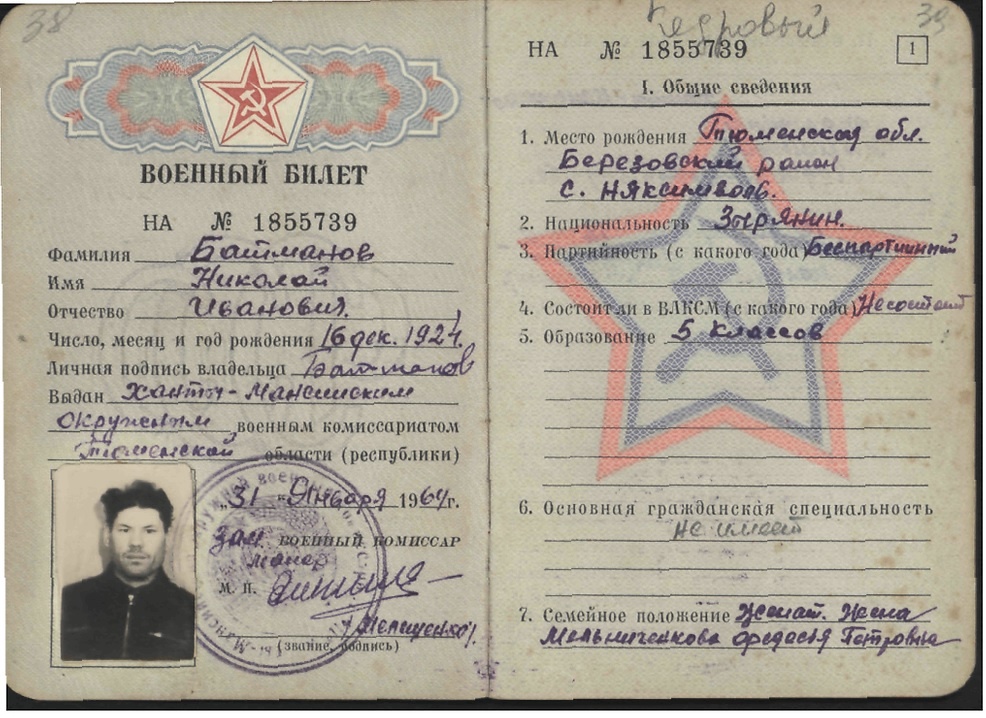 38
ВОЕННЫЙ БИЛЕТ
НА № 1855739
Фамилия Батманов
Имя Николай
Отчество Иванович.
Число, месяц и год рождения 16 дек. 1924.
Личная подпись владельца Батманов
Выдан Ханты-Мансийским
Окружным военным комиссариатом
Тюменской области (республики)
„31" Января 1964г.
зам. ВОЕННЫЙ КОМИССАР
майор
М. П.
(звание, подпись)
Кедровый
39
НА № 1855739
1
I. Общие сведения
1. Место рождения Тюменская обл.
Березовский район
с.
2. Национальность Зырянин.
3. Партийность (с какого года) Беспартийный
4. Состоит ли в ВЛКСМ (с какого года) Несостоит
5. Образование 5 классов
6. Основная гражданская специальность
не имеет
7. Семейное положение Женат. Жена
Мельниченкова Федосья Петровна